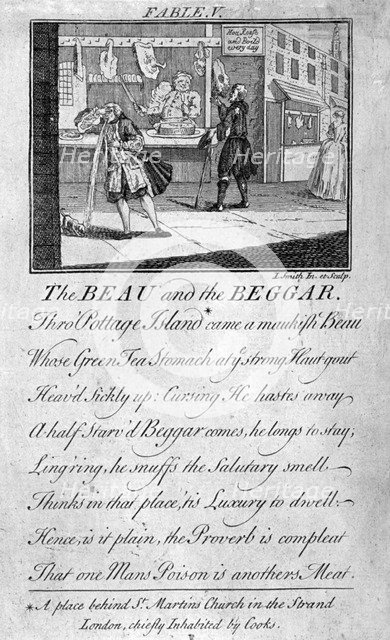 FABLE.V.
Hot Roast
and Boil'd
every day
I. Smith In. et Sculp.
The BEAU and the BEGGAR.
Thro' Pottage Island* came a maukish Beau
Whose Green Tea Stomach at yͤ strong Hautgout
Heav'd Sickly up: Cursing He hastes away
A half Starv'd Beggar comes, he longs to stay;
Ling'ring, he snuffs the Salutary smell
Thinks in that place, 'tis Luxury to dwell:
Hence, is it plain, the Proverb is compleat
That one Mans Poison is anothers Meat.
*A place behind Sᵗ. Martins Church in the Strand
London, chiefly Inhabited by Cooks.
Heritage
Heritage
Heritage
Heritage
Heritage
Heritage